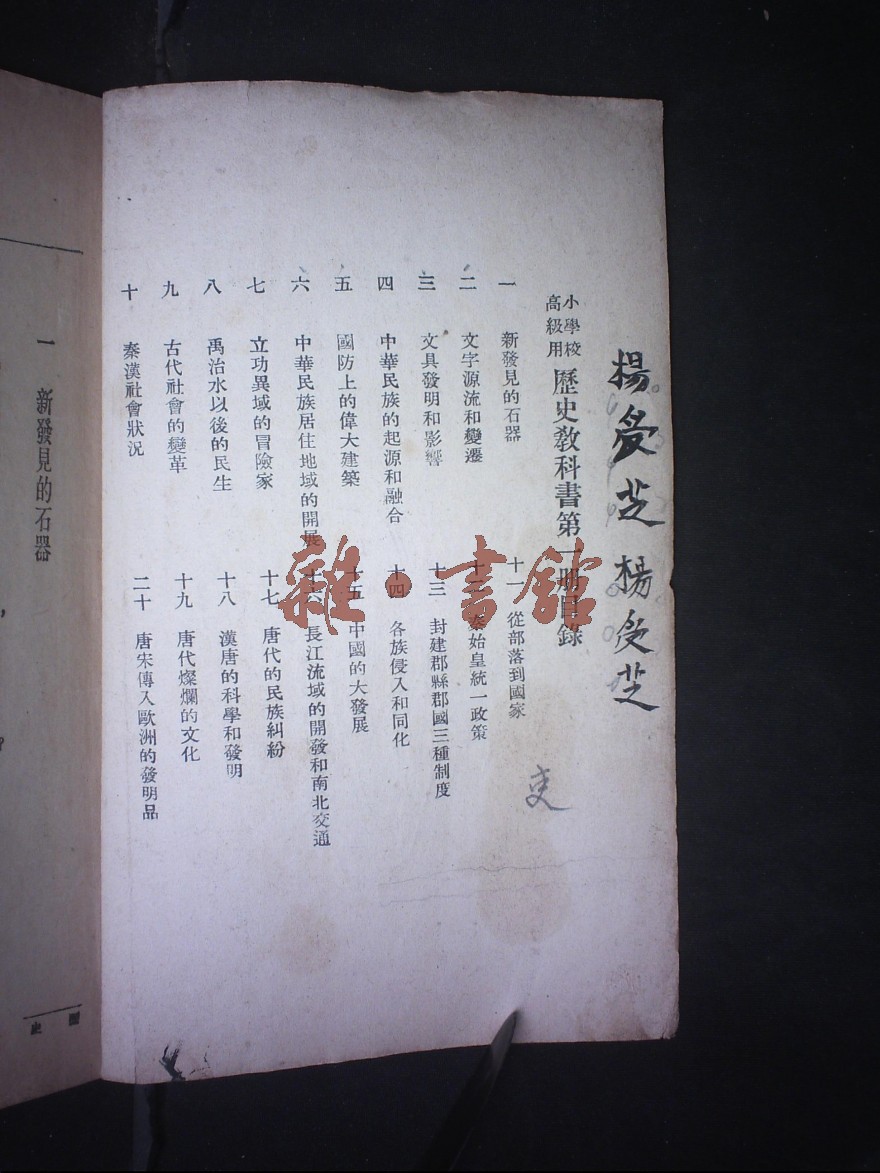 楊受芝 楊受芝
小學校
高級用
歷史教科書第一冊目錄
一 新發見的石器
二 文字源流和變遷
三 文具發明和影響
四 中華民族的起源和融合
五 國防上的偉大建築
六 中華民族居住地域的開展
七 立功異域的冒險家
八 禹治水以後的民生
九 古代社會的變革
十 秦漢社會狀況
十一 從部落到國家
十二 秦始皇統一政策
十三 封建郡縣郡國三種制度
十四 各族侵入和同化
十五 中國的大發展
十六 長江流域的開發和南北交通
十七 唐代的民族糾紛
十八 漢唐的科學和發明
十九 唐代燦爛的文化
二十 唐宋傳入歐洲的發明品
雜·書館
一 新發見的石器